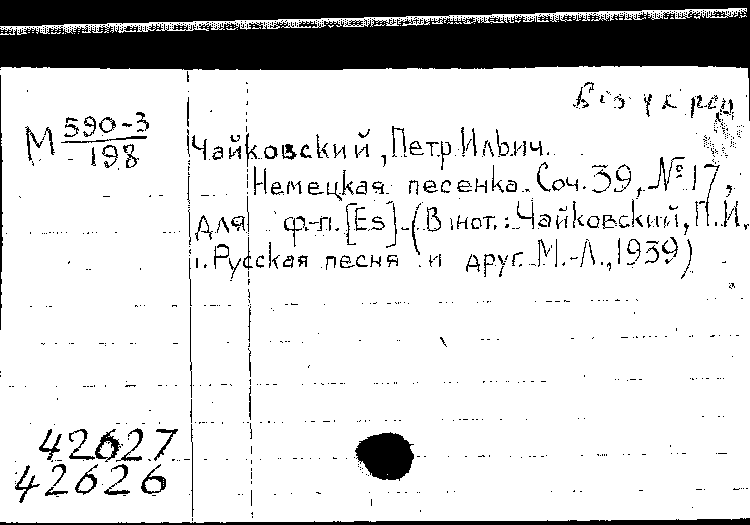 М 590-3
198
Чайковский, Петр Ильич.
Немецкая песенка. Соч. 39, № 17,
для ф.-п. [Es]. (В нот.: Чайковский, П.И.
1. Русская песня и друг. М.-Л., 1939)
42627
42626